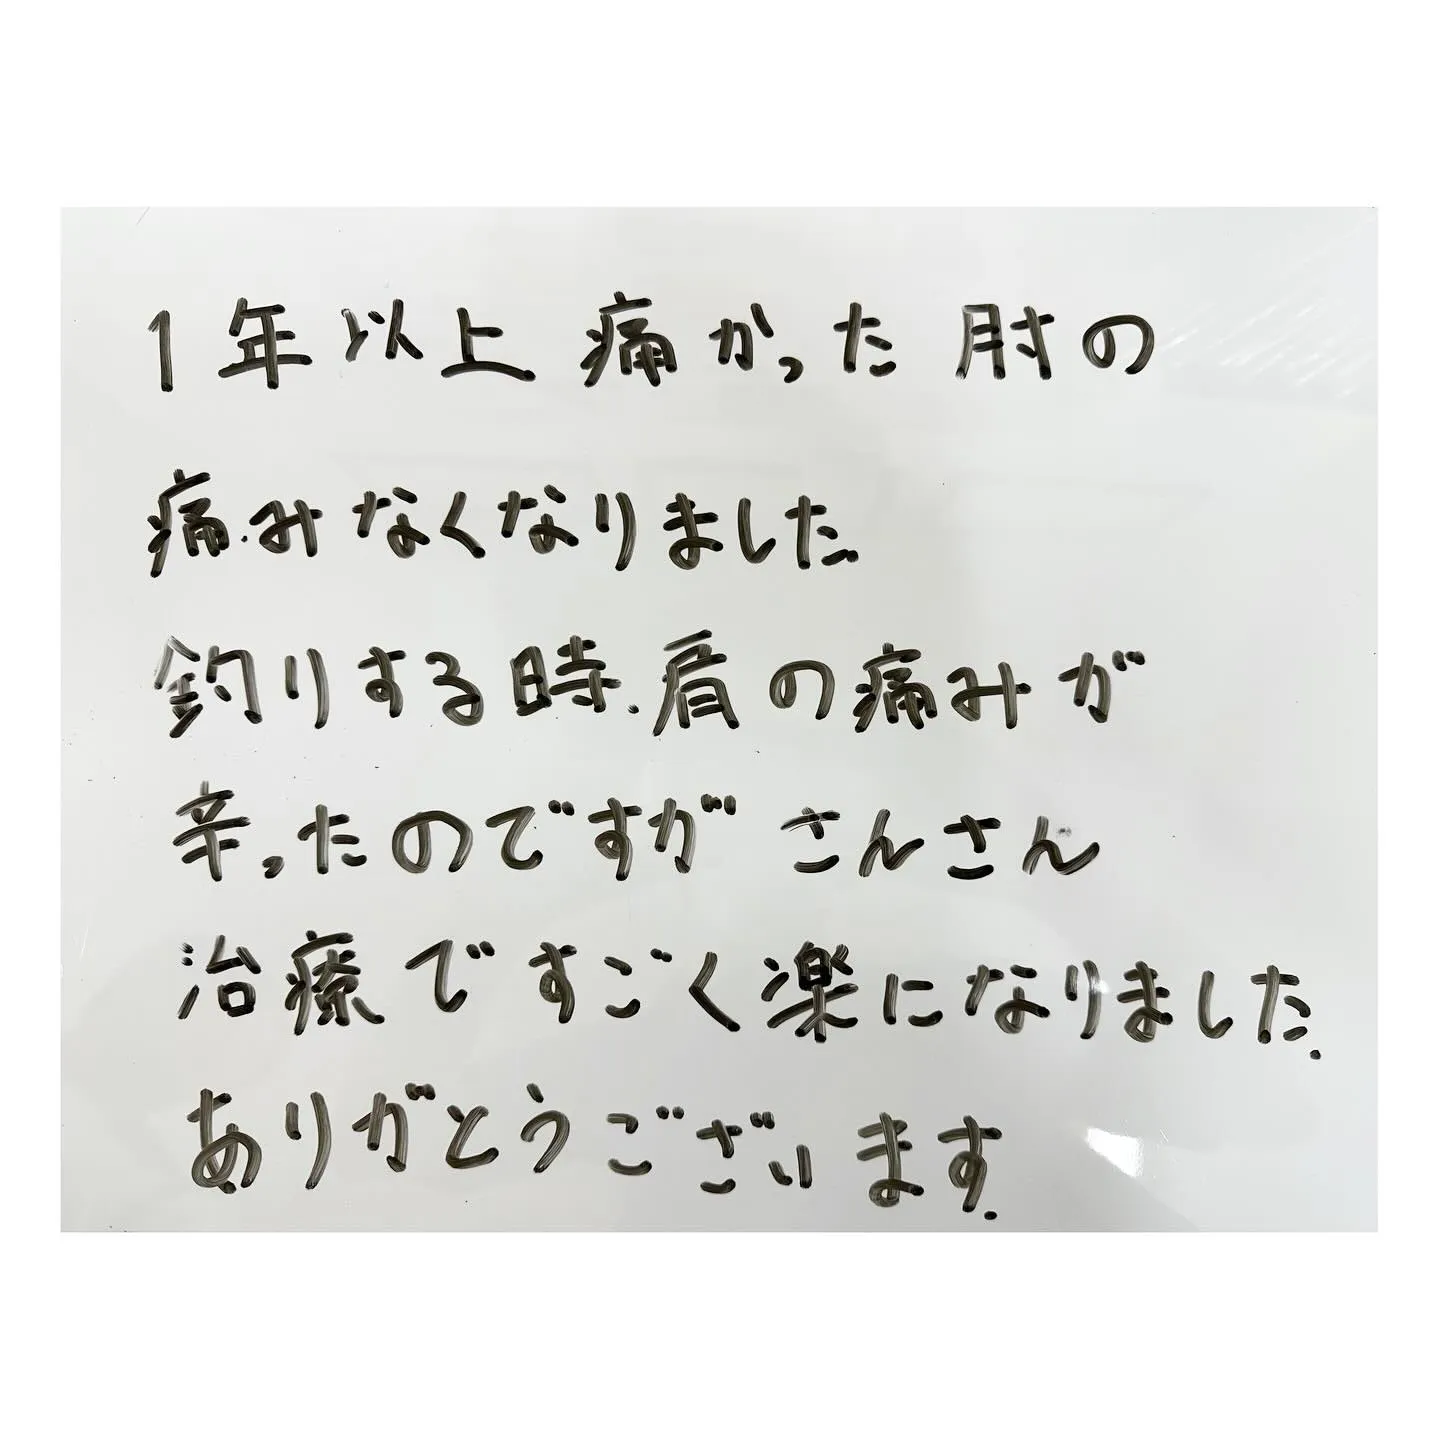 1年以上痛かった肘の
痛みなくなりました
釣りする時.肩の痛みが
辛ったのですが さんさん
治療ですごく楽になりました.
ありがとうございます.